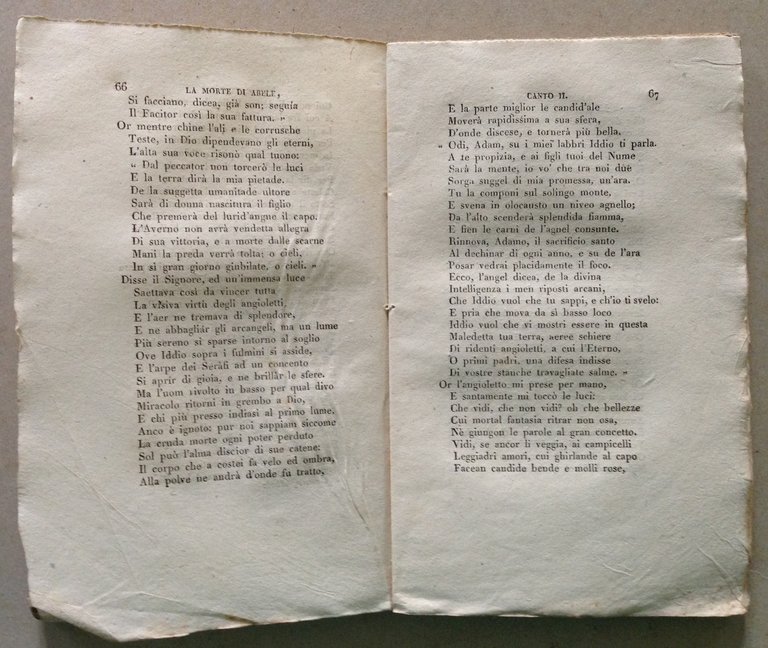 66 LA MORTE DI ABELE,
Si facciano, dicea, già son; seguía
Il Facitor così la sua fattura. »
Or mentre chine l'ali e le corrusche
Teste, in Dio dipendevano gli eterni,
L'alta sua voce risonò qual tuono:
« Dal peccator non torcerò le luci
E la terra dirà la mia pietade.
De la suggetta umanitade ultore
Sarà di donna nascitura il figlio
Che premerà del lurid'angue il capo.
L'Averno non avrà vendetta allegra
Di sua vittoria, e a morte dalle scarne
Mani la preda verrà tolta; o cieli,
In sì gran giorno giubilate, o cieli. »
Disse il Signore, ed un'immensa luce
Saettava così da vincer tutta
La visiva virtù degli angioletti,
E l'aer ne tremava di splendore,
E ne abbagliár gli arcangeli, ma un lume
Più sereno si sparse intorno al soglio
Ove Iddio sopra i fulmini si asside,
E l'arpe dei Seráfi ad un concento
Si aprir di gioia, e ne brillár le sfere.
Ma l'uom rivolto in basso per qual divo
Miracolo ritorni in grembo a Dio,
E chi più presso indiasi al primo lume.
Anco è ignoto: pur noi sappiam siccome
La cruda morte ogni poter perduto
Sol può l'alma discior di sue catene:
Il corpo che a costei fa velo ed ombra,
Alla polve ne andrà d'onde fu tratto,
CANTO II. 67
E la parte miglior le candid'ale
Moverà rapidissima a sua sfera,
D'onde discese, e tornerà più bella.
« Odi, Adam, su i miei labbri Iddio ti parla.
A te propizia, e ai figli tuoi del Nume
Sarà la mente, io vo' che tra noi due
Sorga suggel di mia promessa, un'ara.
Tu la componi sul solingo monte,
E svena in olocausto un niveo agnello;
Da l'alto scenderà splendida fiamma,
E fien le carni de l'agnel consunte.
Rinnova, Adamo, il sacrificio santo
Al dechinar di ogni anno, e su de l'ara
Posar vedrai placidamente il foco.
Ecco, l'angel dicea, de la divina
Intelligenza i men riposti arcani,
Che Iddio vuol che tu sappi, e ch'io ti svelo:
E pria che mova da sì basso loco
Iddio vuol che vi mostri essere in questa
Maledetta tua terra, aeree schiere
Di ridenti angioletti, a cui l'Eterno,
O primi padri, una difesa indisse
Di vostre stanche travagliate salme. »
Or l'angioletto mi prese per mano,
E santamente mi toccò le luci:
Che vidi, che non vidi? oh che bellezze
Cui mortal fantasia ritrar non osa,
Nè giungon le parole al gran concetto.
Vidi, se ancor li veggia, ai campicelli
Leggiadri amori, cui ghirlande al capo
Facean candide bende e molli rose,